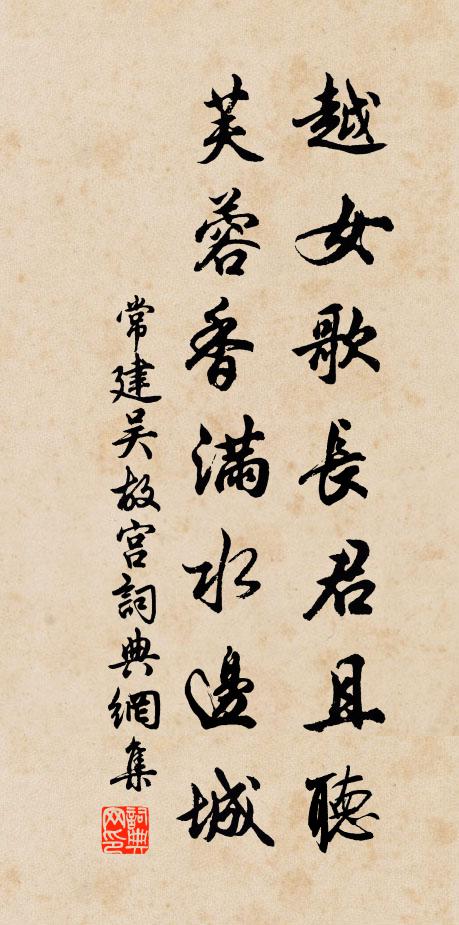 越女歌長君且聽
芙蓉香滿水邊城
常建吳故宮詞典網集
詞典网印